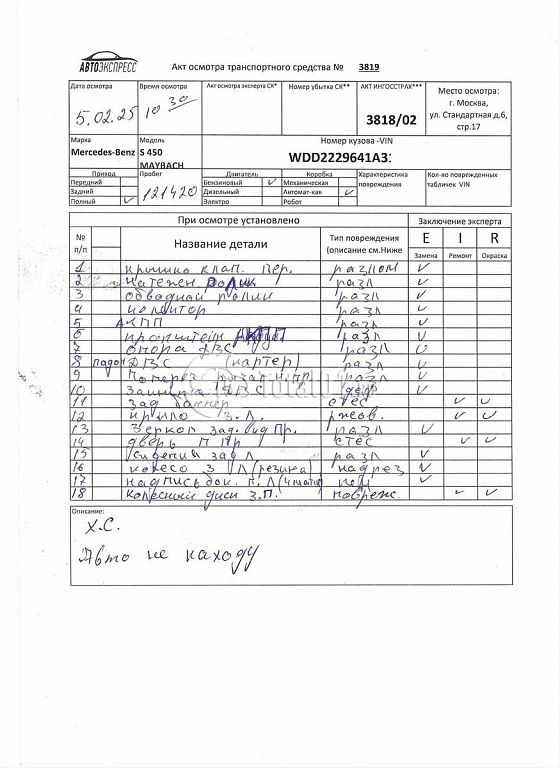 АВТОЭКСПРЕСС
Акт осмотра транспортного средства № 3819
Дата осмотра
5.02.25
Время осмотра
10 30
Акт осмотра эксперта СК*
Номер убытка СК**
АКТ ИНГОССТРАХ***
3818/02
Место осмотра:
г. Москва,
ул. Стандартная д.6,
стр.17
Марка
Mercedes-Benz
Модель
S 450
MAYBACH
Номер кузова -VIN
WDD2229641A3
Привод
Передний
Задний
Полный ✓
Пробег
121420
Двигатель
Бензиновый ✓
Дизельный
Электро
Коробка
Механическая
Автомат-кая ✓
Робот
Характеристика повреждения
Кол-во поврежденных
табличек VIN
При осмотре установлено
Заключение эксперта
№ п/п
Название детали
Тип повреждения
(описание см.Ниже
E I R
Замена Ремонт Окраска
1 крышка клап. пер. разлом ✓
2 натежен. ролик разл ✓
3 обводной ролик разл ✓
4 монитор разл ✓
5 АКПП разл ✓
6 кронштейн АКПП разл ✓
7 опора ДВС разл
8 поддон ДВС (картер) разл ✓
9 Попереч. рычаг н.пр разл ✓
10 Защита ДВС деф ✓
11 зад бампер стёс ✓ ✓
12 крыло З.Л. ржов. ✓ ✓
13 Зеркал зад.вид Пр. разл ✓
14 дверь П Пр стёс ✓ ✓
15 сидения зад Л разл ✓
16 колесо З Л (резина) надрез ✓
17 надпись бок. П.Л ✓
18 Колесный диск З.П. повреж. ✓ ✓
Описание:
Х.С.
Авто не на ходу